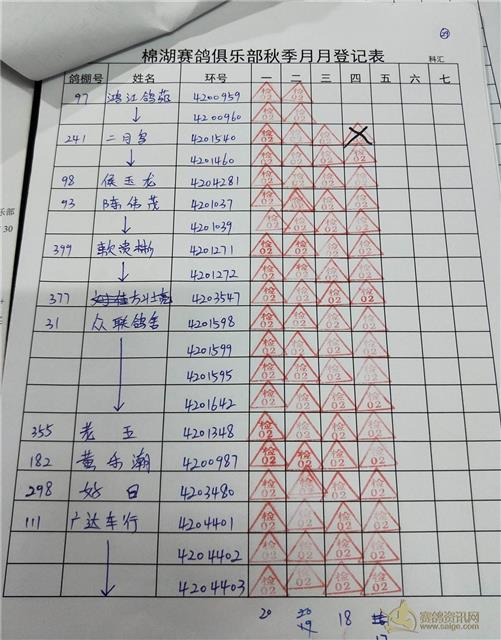 棉湖赛鸽俱乐部秋季月月登记表
科汇
鸽棚号 姓名 环号 一 二 三 四 五 六 七
97 鸿江鸽苑 4200959 检02 检02
4200960 检02 检02
241 二月鸟 4201540 检02 检02 检02 检02
4201460 检02 检02 检02 检02
98 侯玉龙 4204281 检02 检02 检02 检02
93 陈伟茂 4201037 检02 检02 检02 检02
4201039 检02 检02 检02 检02
399 4201271 检02 检02 检02 检02
4201272 检02 检02 检02 检02
377 4203547 检02 检02 检02 检02
31 众联鸽舍 4201598 检02 检02 检02 检02
4201599 检02 检02 检02 检02
4201595 检02 检02 检02 检02
4201642 检02 检02 检02 检02
355 老五 4201348 检02 检02 检02 检02
182 黄乐潮 4200987 检02 检02 检02 检02
298 好日 4203480 检02 检02 检02 检02
111 广达车行 4204401 检02 检02 检02 检02
4204402 检02 检02 检02 检02
4204403 检02 检02 检02 检02
20 18 17
乐部
30
赛鸽资讯网
www.saige.com